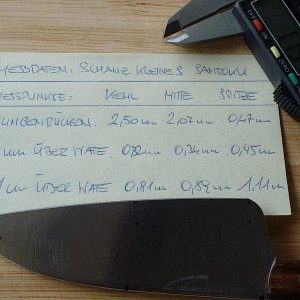 MESSDATEN: SCHANZ KLEINES SANTOKU
MESSPUNKTE: KEHL MITTE SPITZE
KLINGENRÜCKEN: 2,50mm 2,07mm 0,47mm
mm ÜBER WATE: 0,32mm 0,34mm 0,45mm
mm ÜBER WATE 0,81mm 0,89mm 1,11mm